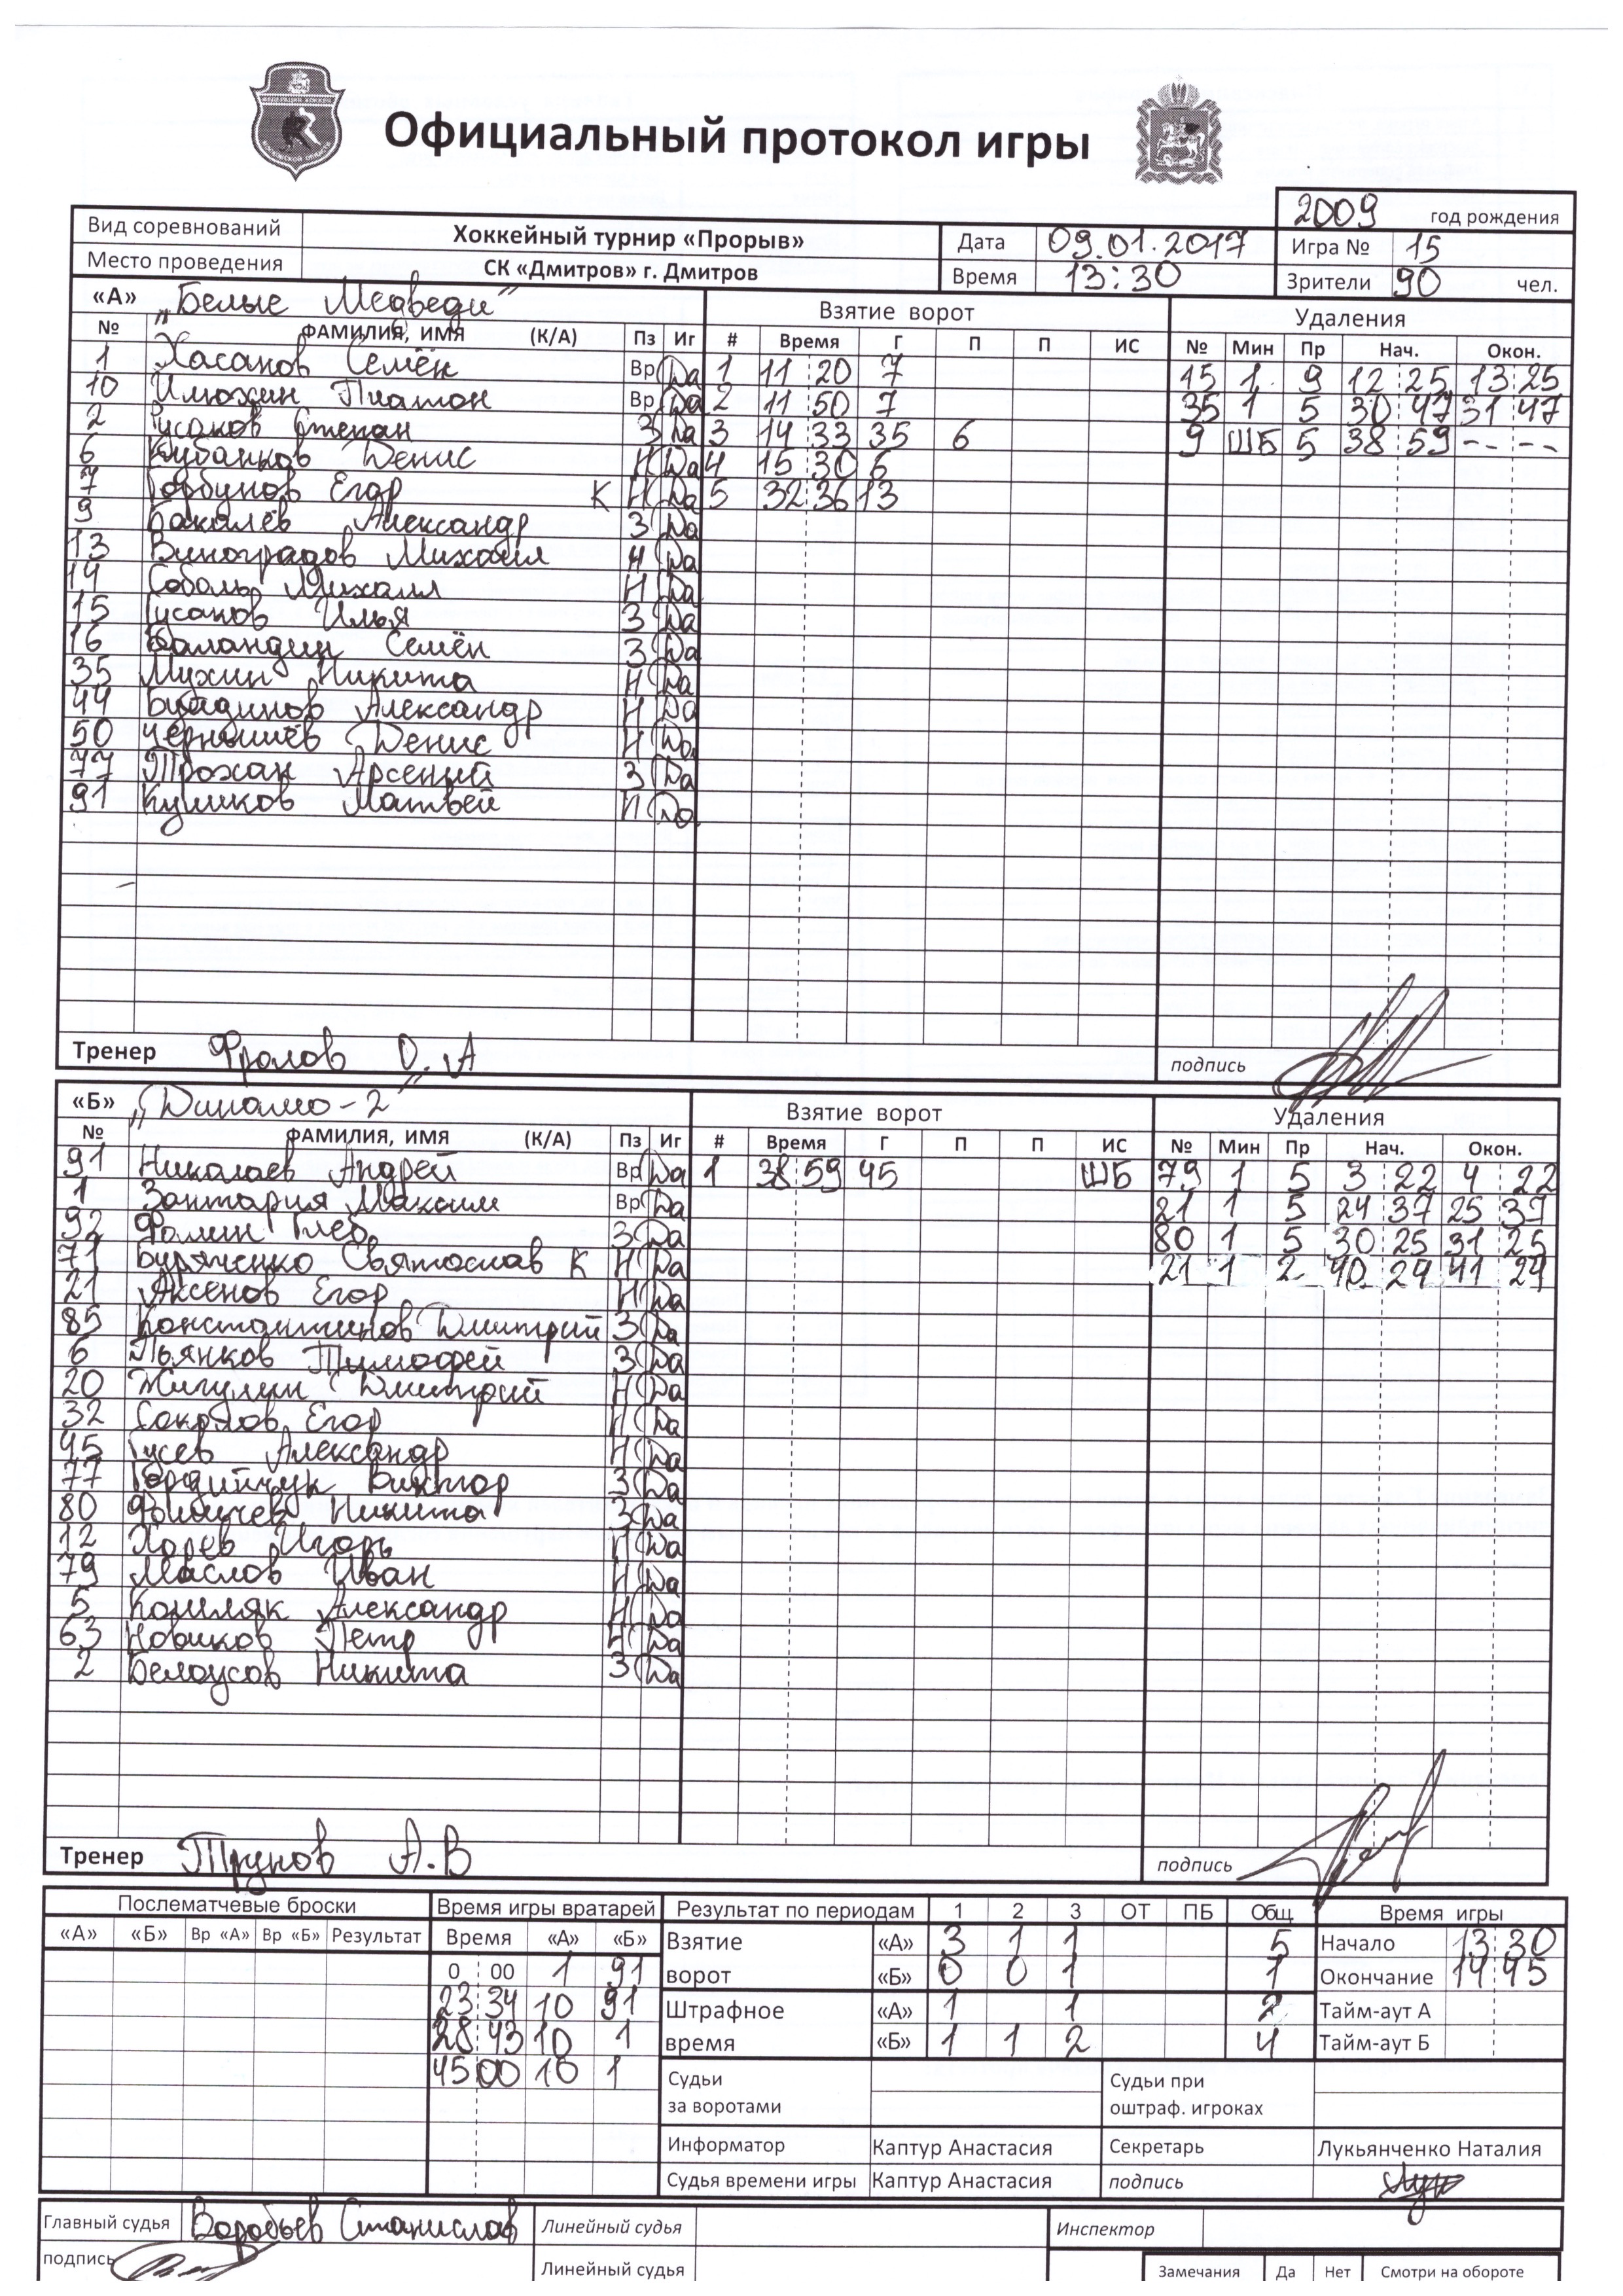 Официальный протокол игры
2009 год рождения
Вид соревнований Хоккейный турнир «Прорыв» Дата 09.01.2017 Игра № 15
Место проведения СК «Дмитров» г. Дмитров Время 13:30 Зрители 90 чел.
«А» „Белые Медведи" Взятие ворот Удаления
№ ФАМИЛИЯ, ИМЯ (К/А) Пз Иг # Время Г П П ИС № Мин Пр Нач. Окон.
1 Хасанов Семён Вр Да 1 11 20 7 15 1 9 12 25 13 25
10 Илюхин Платон Вр Да 2 11 50 7 35 1 5 30 47 31 47
2 Гусаков Степан З Да 3 14 33 35 6 9 ШБ 5 38 59 - - - -
6 Кубанков Денис Н Да 4 15 30 6
7 Горбунов Егор К Н Да 5 32 36 13
9 Бакалёв Александр З Да
13 Виноградов Михаил Н Да
14 Соболь Михаил Н Да
15 Гусаков Илья З Да
16 Баландин Семён З Да
35 Мухин Никита Н Да
44 Александр Н Да
50 Чернышёв Денис Н Да
77 Трохан Арсений З Да
91 Куликов Матвей Н Да
Тренер Фролов О.А подпись
«Б» „Динамо-2" Взятие ворот Удаления
№ ФАМИЛИЯ, ИМЯ (К/А) Пз Иг # Время Г П П ИС № Мин Пр Нач. Окон.
91 Николаев Андрей Вр Да 1 38 59 45 ШБ 79 1 5 3 22 4 22
1 Зантария Максим Вр Да 21 1 5 24 37 25 37
92 Фомин Глеб З Да 80 1 5 30 25 31 25
71 Буряченко Святослав К Н Да 21 1 2 40 24 41 24
21 Аксенов Егор Н Да
85 Константинов Дмитрий З Да
6 Пьянков Тимофей З Да
20 Жигулин Дмитрий Н Да
32 Соколов Егор Н Да
45 Гусев Александр Н Да
77 Гордийчук Виктор З Да
80 Никита З Да
12 Хорев Игорь Н Да
79 Маслов Иван Н Да
5 Кошляк Александр Н Да
63 Новиков Петр Н Да
2 Белоусов Никита З Да
Тренер Трунов А.В подпись
Послематчевые броски Время игры вратарей Результат по периодам 1 2 3 ОТ ПБ Общ. Время игры
«А» «Б» Вр «А» Вр «Б» Результат Время «А» «Б» Взятие «А» 3 1 1 5 Начало 13 30
0 00 1 91 ворот «Б» 0 0 1 1 Окончание 14 45
23 34 10 91 Штрафное «А» 1 1 2 Тайм-аут А
28 43 10 1 время «Б» 1 1 2 4 Тайм-аут Б
45 00 10 1 Судьи Судьи при
за воротами оштраф. игроках
Информатор Каптур Анастасия Секретарь Лукьянченко Наталия
Судья времени игры Каптур Анастасия подпись
Главный судья Воробьев Станислав Линейный судья Инспектор
подпись Линейный судья Замечания Да Нет Смотри на обороте